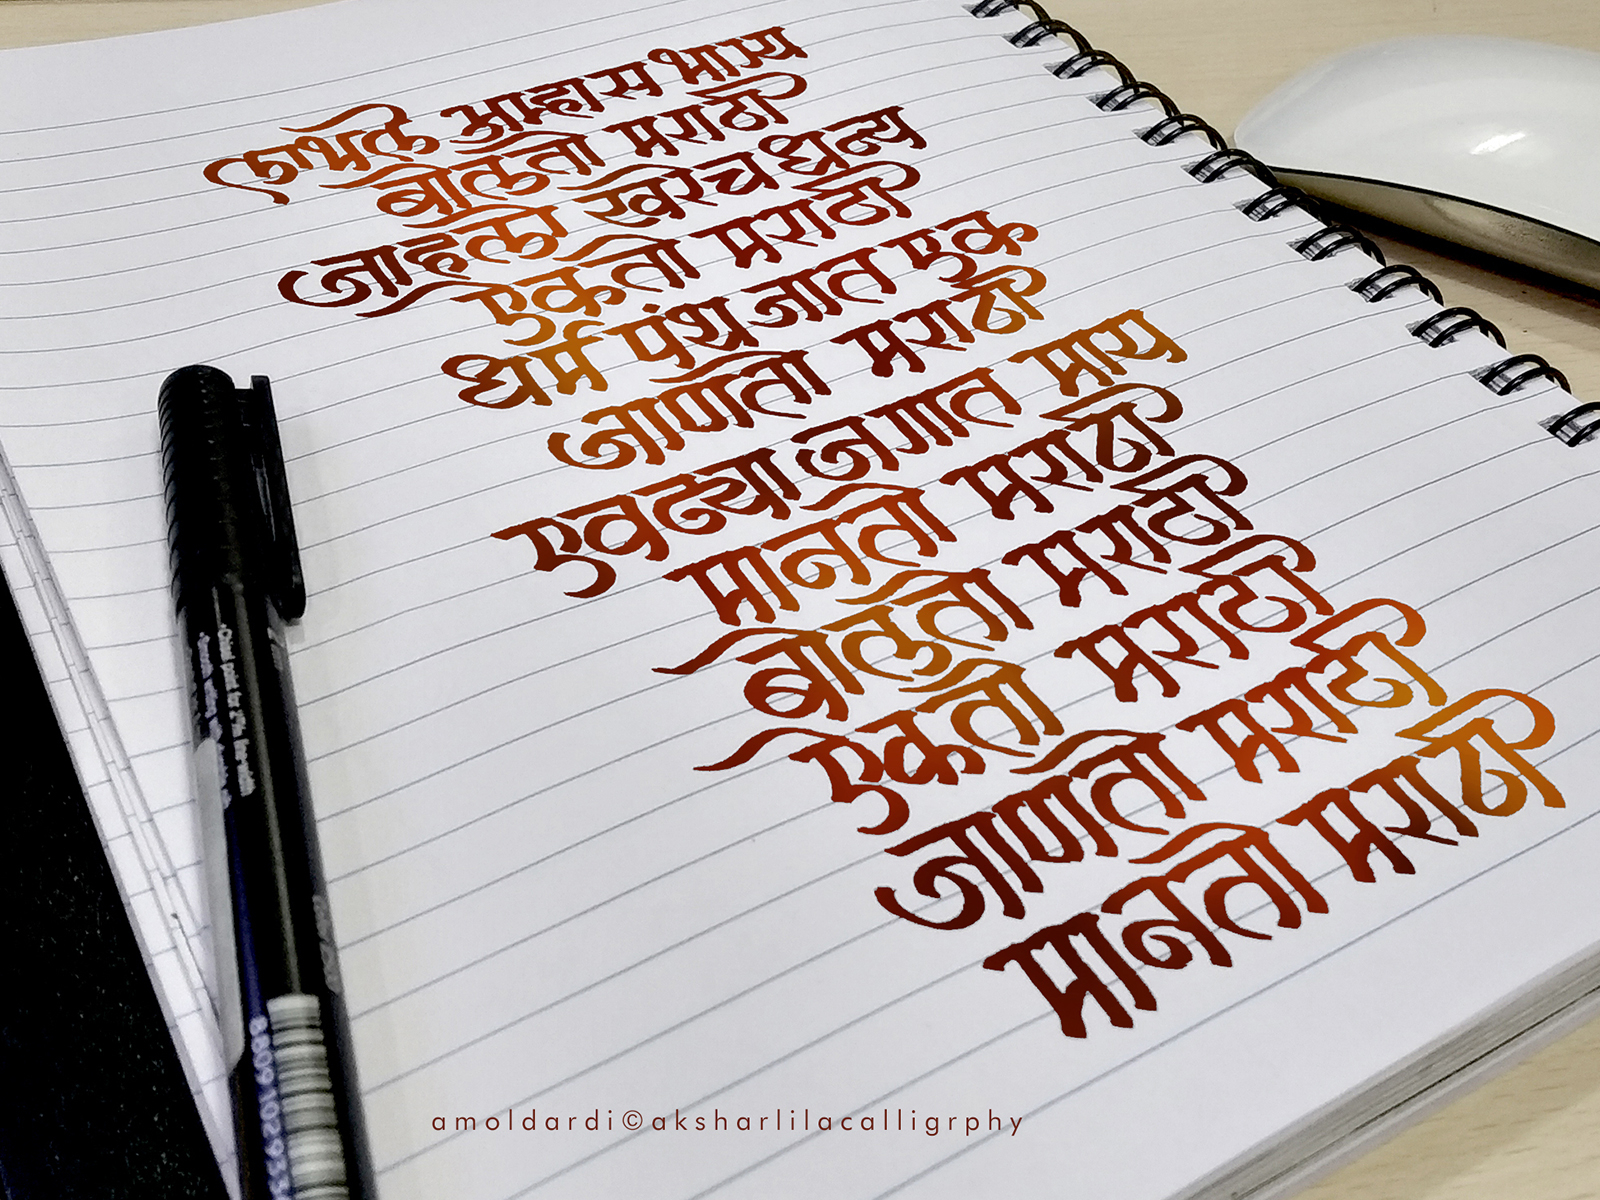 लाभले आम्हास भाग्य
बोलतो मराठी
जाहलो खरेच धन्य
ऐकतो मराठी
धर्म पंथ जात एक
जाणतो मराठी
एवढ्या जगात माय
मानतो मराठी
बोलतो मराठी
ऐकतो मराठी
जाणतो मराठी
मानतो मराठी
amoldardi©aksharlilacalligrphy